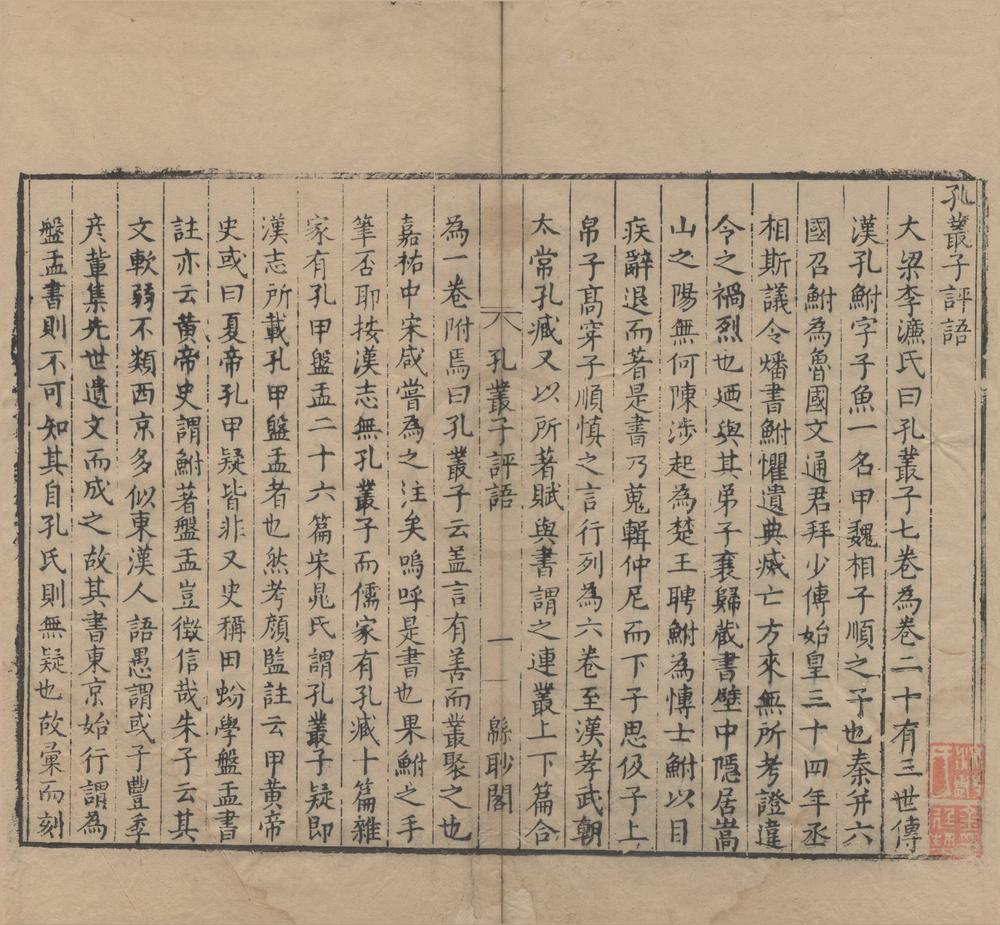 孔叢子評語
大梁李濂氏曰孔叢子七卷為卷二十有三世傳
漢孔鮒字子魚一名甲魏相子順之子也秦并六
國召鮒為魯國文通君拜少傅始皇三十四年丞
相斯議令燔書鮒懼遺典烕亡方來無所考證違
令之禍烈也廼與其弟子襄歸藏書壁中隱居嵩
山之陽無何陳涉起為楚王聘鮒為愽士鮒以目
疾辭退而著是書乃蒐輯仲尼而下子思伋子上
帛子高穿子順慎之言行列為六卷至漢孝武朝
太常孔臧又以所著賦與書謂之連叢上下篇合
孔叢子評語 一 緜眇閣
為一卷附焉曰孔叢子云盖言有善而叢聚之也
嘉祐中宋咸嘗為之注矣嗚呼是書也果鮒之手
筆否耶按漢志無孔叢子而儒家有孔臧十篇雜
家有孔甲盤盂二十六篇宋晁氏謂孔叢子疑即
漢志所載孔甲盤盂者也然考顔監註云甲黃帝
史或曰夏帝孔甲疑皆非又史稱田蚡學盤盂書
註亦云黃帝史謂鮒著盤盂豈徵信哉朱子云其
文軟弱不類西京多似東漢人語愚謂或子豐季
彥軰集先世遺文而成之故其書東京始行謂為
盤盂書則不可知其自孔氏則無疑也故彙而刻